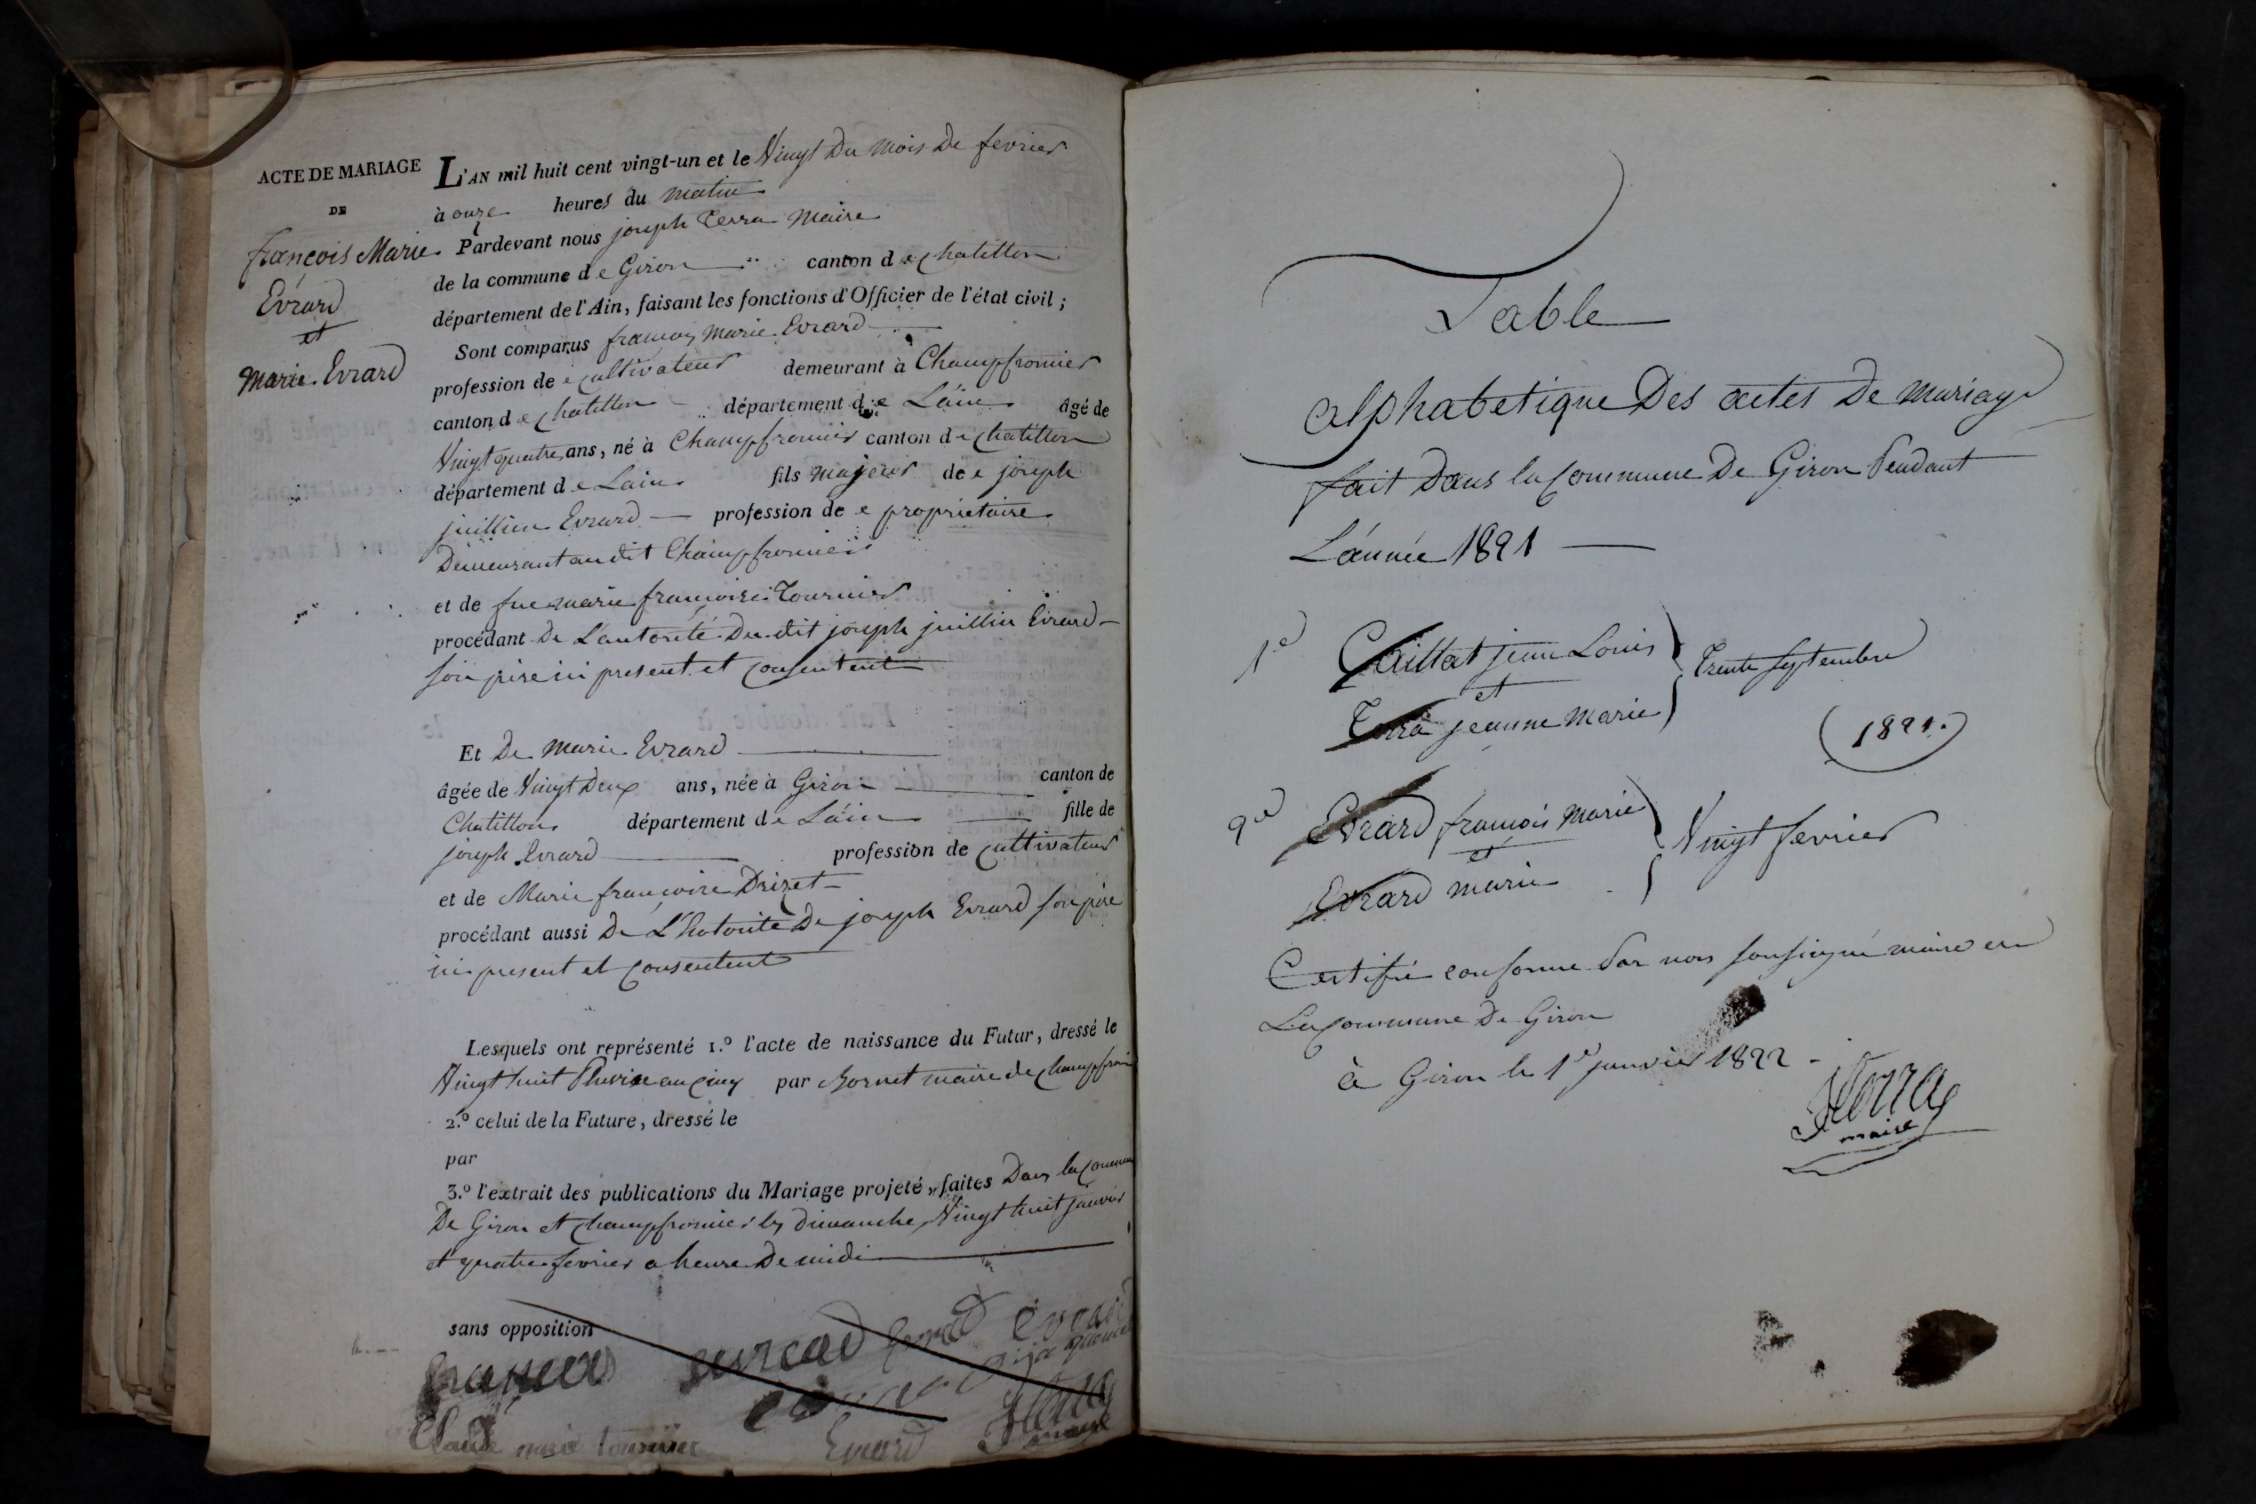 ACTE DE MARIAGE
DE
françois Marie
Evrard
et
Marie Evrard
L'AN mil huit cent vingt-un et le Vingt Du Mois De fevrier
à onze heures du matin
Pardevant nous joseph Terra Maire
de la commune de Giron canton de Chatillon
département de l'Ain, faisant les fonctions d'Officier de l'état civil ;
Sont comparus francois Marie Evrard
profession de cultivateur demeurant à Champfromier
canton de Chatillon département de L'ain âgé de
Vingt quatre ans, né à Champfromier canton de Chatillon
département de Lain fils majeur de joseph
juillien Evrard profession de propriétaire
Demeurant au dit Champfromier
et de fue marie francoise Tournier
procédant De L'autorité Du dit joseph juillin Evrard
son père ici present et consentent
Et De Marie Evrard
âgée de Vingt Deux ans, née à Giron canton de
Chatillon département de L'ain fille de
joseph Evrard profession de cultivateur
et de Marie francoise Drizet
procédant aussi De L'hotorité De joseph Evrard son père
ici present et consentent
Lesquels ont représenté 1.º l'acte de naissance du Futur, dressé le
Vingt huit Pluviose an cinq par Bornet maire de champfromi
2.º celui de la Future, dressé le
par
3.º l'extrait des publications du Mariage projeté, faites Dans la Commune
De Giron et champfromier les dimanche Vingt huit janvier
et quatre fevrier a heure De midi
sans opposition
francois evrard
Claude marie tournier Evrard
maire
Table
alphabetique Des actes De mariage
fait Dans la Commune De Giron Pendant
L'année 1821
1.e Caillat jean Louis
et
Terra jeanne Marie
Trente Septembre
(1821.)
2.e Evrard francois Marie
et
Evrard marie
Vingt fevrier
Certifié conforme Par nous soussigné maire en
La Commune De Giron
à Giron le 1er janvier 1822
JTerra
maire